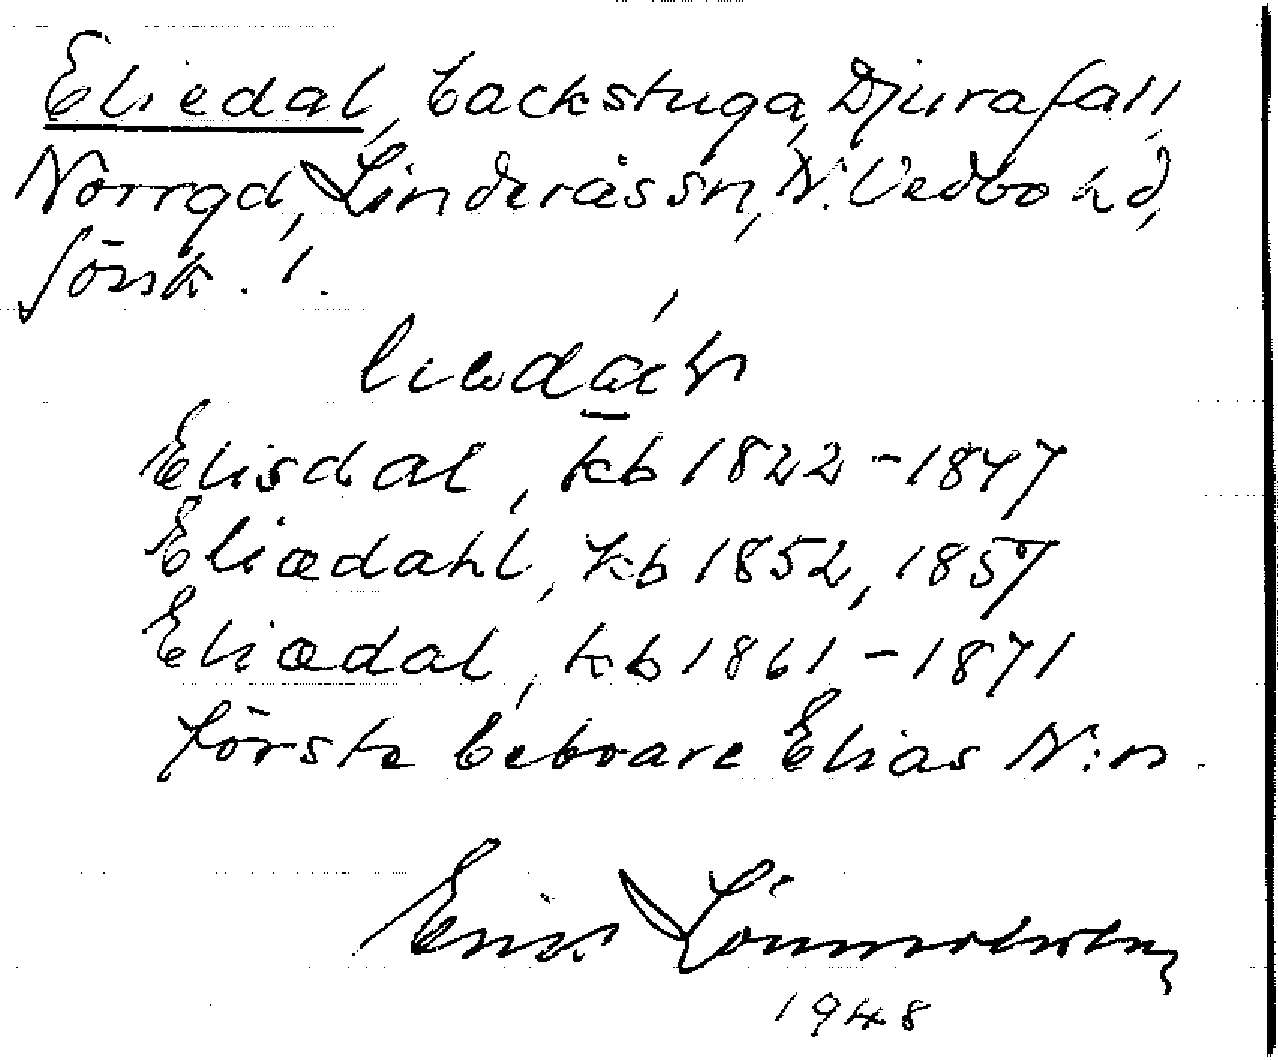 Eliedal, backstuga, Djurafall,
Norrgd, Linderås sn, N. Vedbo hd,
Jönk. l.
Elisdal, kb 1822-1847
Eliædahl, kb 1852, 1857
Eliædal, kb 1861-1871
förste beboare Elias N:n.
Erik
1948